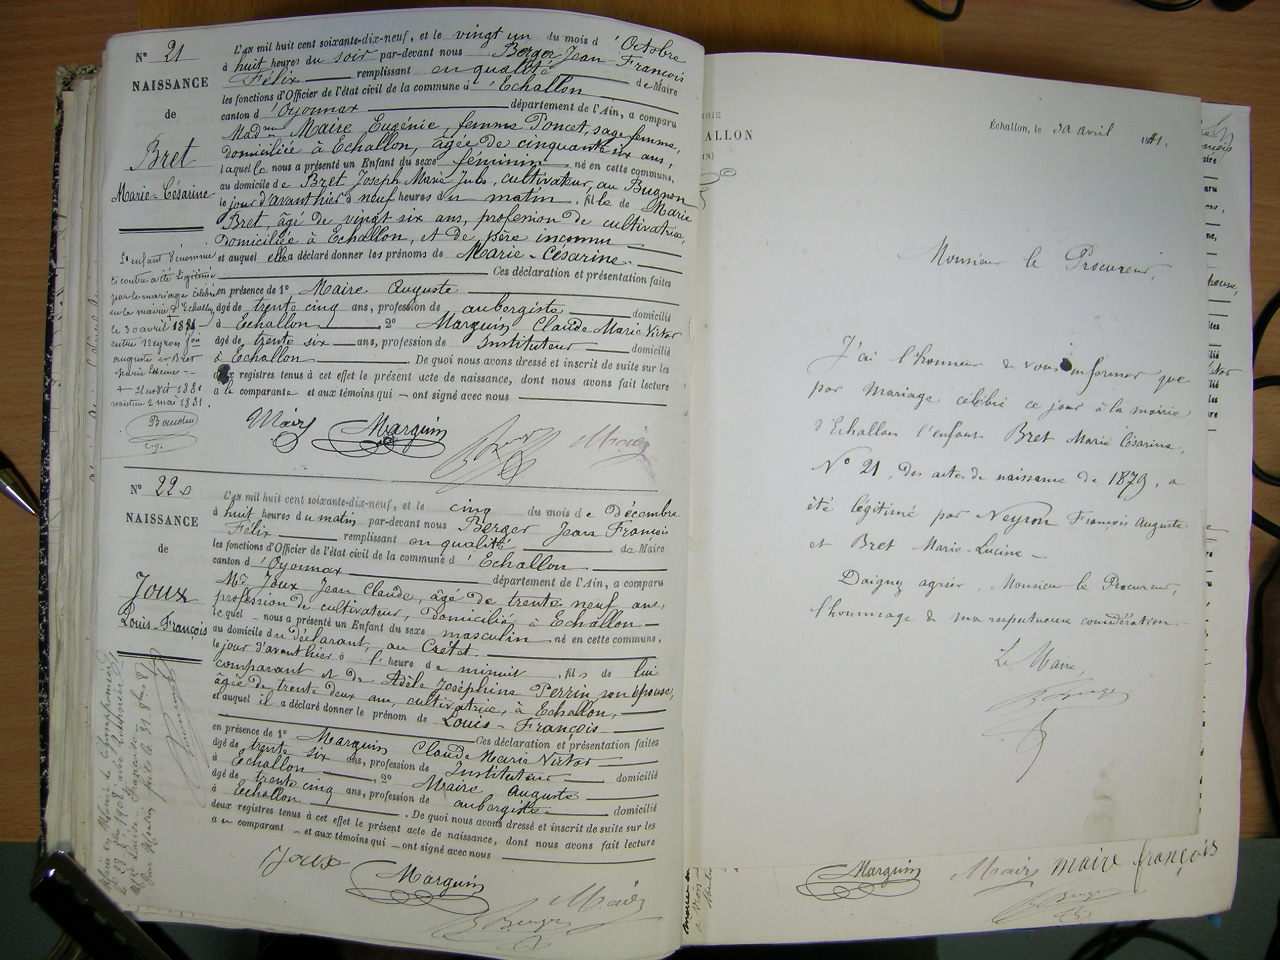 N° 21
NAISSANCE
de
Bret
Marie-Césarine
L'enfant dénommé
ci-contre a été légitimé
par le mariage célébré
en la mairie d'Echallon
le 30 avril 1881
entre Neyron fois
auguste et Bret
marie Lucine
2 mai 1881.
Baudin
L'an mil huit cent soixante-dix-neuf, et le vingt un du mois d'Octobre
à huit heures du soir par-devant nous Berger Jean François
Félix remplissant en qualité de Maire
les fonctions d'Officier de l'état civil de la commune d'Echallon
canton d'Oyonnax département de l'Ain, a comparu
Mad.me Maire Eugénie, femme Poncet, sage femme,
domiciliée à Echallon, âgée de cinquante six ans,
laquelle nous a présenté un Enfant du sexe féminin né en cette commune,
au domicile de Bret Joseph Marie Jules, cultivateur, au Bugnon
le jour d'avant hier à neuf heures du matin, fille de Marie
Bret, âgé de vingt six ans, profession de cultivatrice,
domiciliée à Echallon, et de père inconnu
et auquel elle a déclaré donner les prénoms de Marie-Césarine.
Ces déclaration et présentation faites
en présence de 1° Maire Auguste
âgé de trente cinq ans, profession de aubergiste domicilié
à Echallon, 2° Marguin Claude Marie Victor
âgé de trente six ans, profession de Instituteur domicilié
à Echallon. De quoi nous avons dressé et inscrit de suite sur les
deux registres tenus à cet effet le présent acte de naissance, dont nous avons fait lecture
à la comparante et aux témoins qui ont signé avec nous
Maire Marguin Maire
N° 22
NAISSANCE
de
Joux
Louis-François
L'an mil huit cent soixante-dix-neuf, et le cinq du mois de Décembre
à huit heures du matin par-devant nous Berger Jean François
Félix remplissant en qualité de Maire
les fonctions d'Officier de l'état civil de la commune d'Echallon
canton d'Oyonnax département de l'Ain, a comparu
Mr Joux Jean Claude, âgé de trente neuf ans,
profession de cultivateur, domicilié à Echallon
lequel nous a présenté un Enfant du sexe masculin né en cette commune,
au domicile du déclarant, au Crétet
le jour d'avant hier à l'heure de minuit, fils de lui
comparant et de Adèle Joséphine Perrin son épouse,
âgée de trente deux ans, cultivatrice, à Echallon,
et auquel il a déclaré donner le prénom de Louis-François
Ces déclaration et présentation faites
en présence de 1° Marguin Claude Marie Victor
âgé de trente six ans, profession de Instituteur domicilié
à Echallon, 2° Maire Auguste
âgé de trente cinq ans, profession de aubergiste domicilié
à Echallon. De quoi nous avons dressé et inscrit de suite sur les
deux registres tenus à cet effet le présent acte de naissance, dont nous avons fait lecture
au comparant et aux témoins qui ont signé avec nous
Joux Marguin Maire
Berger
ALLON
Échallon, le 30 avril 1881.
Monsieur le Procureur,
J'ai l'honneur de vous informer que
par Mariage célébré ce jour à la mairie
d'Echallon l'enfant Bret Marie Césarine,
N° 21, des actes de naissance de 1879, a
été légitimé par Neyron François Auguste
et Bret Marie-Lucine
Daignez agréer, Monsieur le Procureur,
l'hommage de ma respectueuse considération
Le Maire,
Berger
Marguin Maire maire françois
Berger